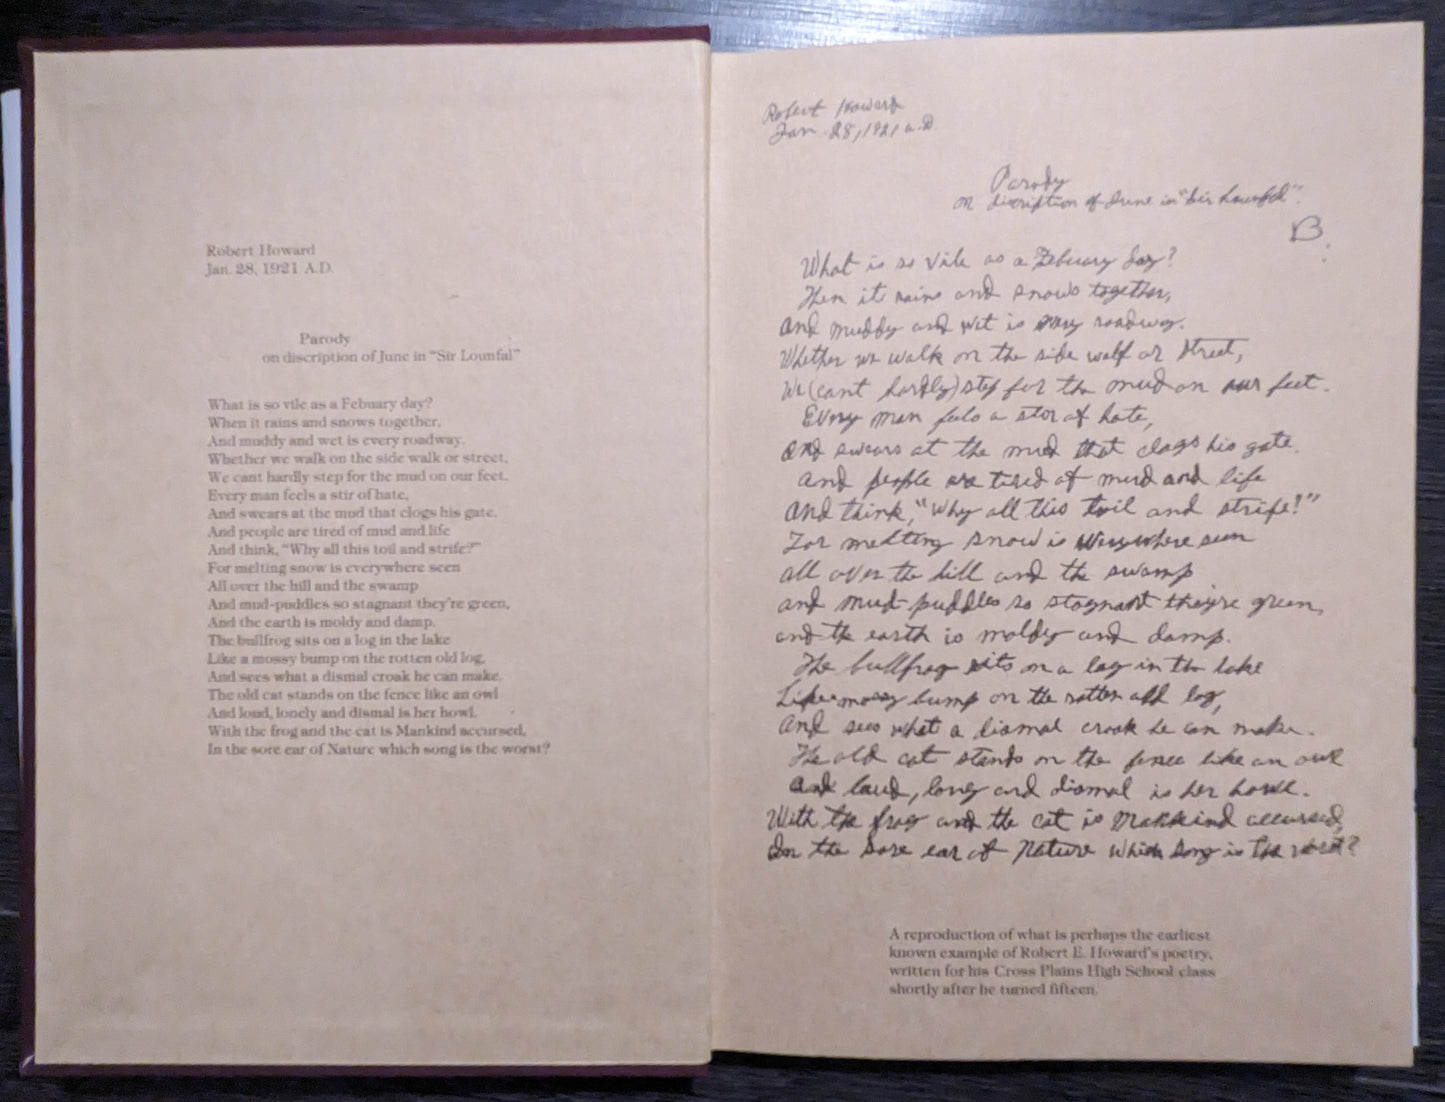 Robert Howard
Jan. 28, 1921 A.D.
Parody
on discription of June in "Sir Lounfal"
What is so vile as a Febuary day?
When it rains and snows together,
And muddy and wet is every roadway.
Whether we walk on the side walk or street,
We cant hardly step for the mud on our feet.
Every man feels a stir of hate,
And swears at the mud that clogs his gate.
And people are tired of mud and life
And think, "Why all this toil and strife?"
For melting snow is everywhere seen
All over the hill and the swamp
And mud-puddles so stagnant they're green,
And the earth is moldy and damp.
The bullfrog sits on a log in the lake
Like a mossy bump on the rotten old log,
And sees what a dismal croak he can make.
The old cat stands on the fence like an owl
And loud, lonely and dismal is her howl.
With the frog and the cat is Mankind accursed,
In the sore ear of Nature which song is the worst?
Robert Howard
Jan. 28, 1921 A.D.
Parody
on discription of June in "Sir Lounfal".
B.
What is so vile as a Febuary day?
When it rains and snows together,
And muddy and wet is every roadway.
Whether we walk on the side walk or street,
We (cant hardly) step for the mud on our feet.
Every man feels a stir of hate,
And swears at the mud that clogs his gate.
And people are tired of mud and life
And think, "Why all this toil and strife?"
For melting snow is everywhere seen
all over the hill and the swamp
and mud-puddles so stagnant they're green,
and the earth is moldy and damp.
The bullfrog sits on a log in the lake
Like a mossy bump on the rotten old log,
And sees what a dismal croak he can make.
The old cat stands on the fence like an owl
And loud, lonely and dismal is her howl.
With the frog and the cat is Mankind accursed,
In the sore ear of Nature which song is the worst?
A reproduction of what is perhaps the earliest
known example of Robert E. Howard's poetry,
written for his Cross Plains High School class
shortly after he turned fifteen.